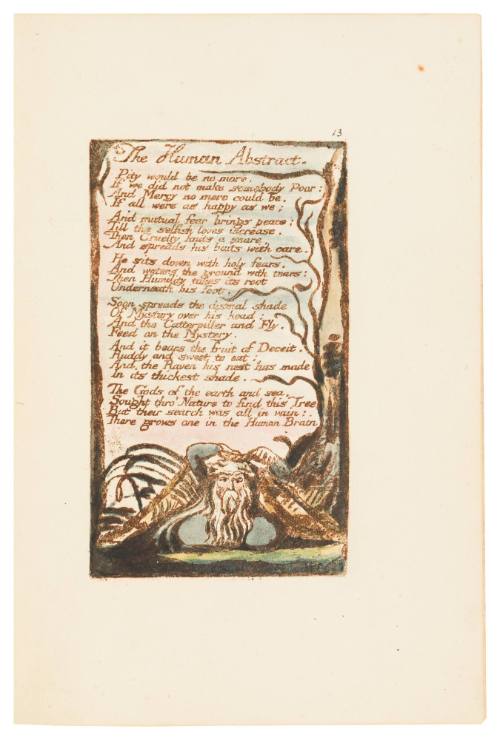 13
The Human Abstract.
Pity would be no more,
If we did not make somebody Poor:
And Mercy no more could be,
If all were as happy as we;
And mutual fear brings peace;
Till the selfish loves increase.
Then Cruelty knits a snare,
And spreads his baits with care.
He sits down with holy fears,
And waters the ground with tears:
Then Humility takes its root
Underneath his foot.
Soon spreads the dismal shade
Of Mystery over his head;
And the Catterpiller and Fly,
Feed on the Mystery.
And it bears the fruit of Deceit,
Ruddy and sweet to eat:
And the Raven his nest has made
In its thickest shade.
The Gods of the earth and sea,
Sought thro' Nature to find this Tree
But their search was all in vain:
There grows one in the Human Brain